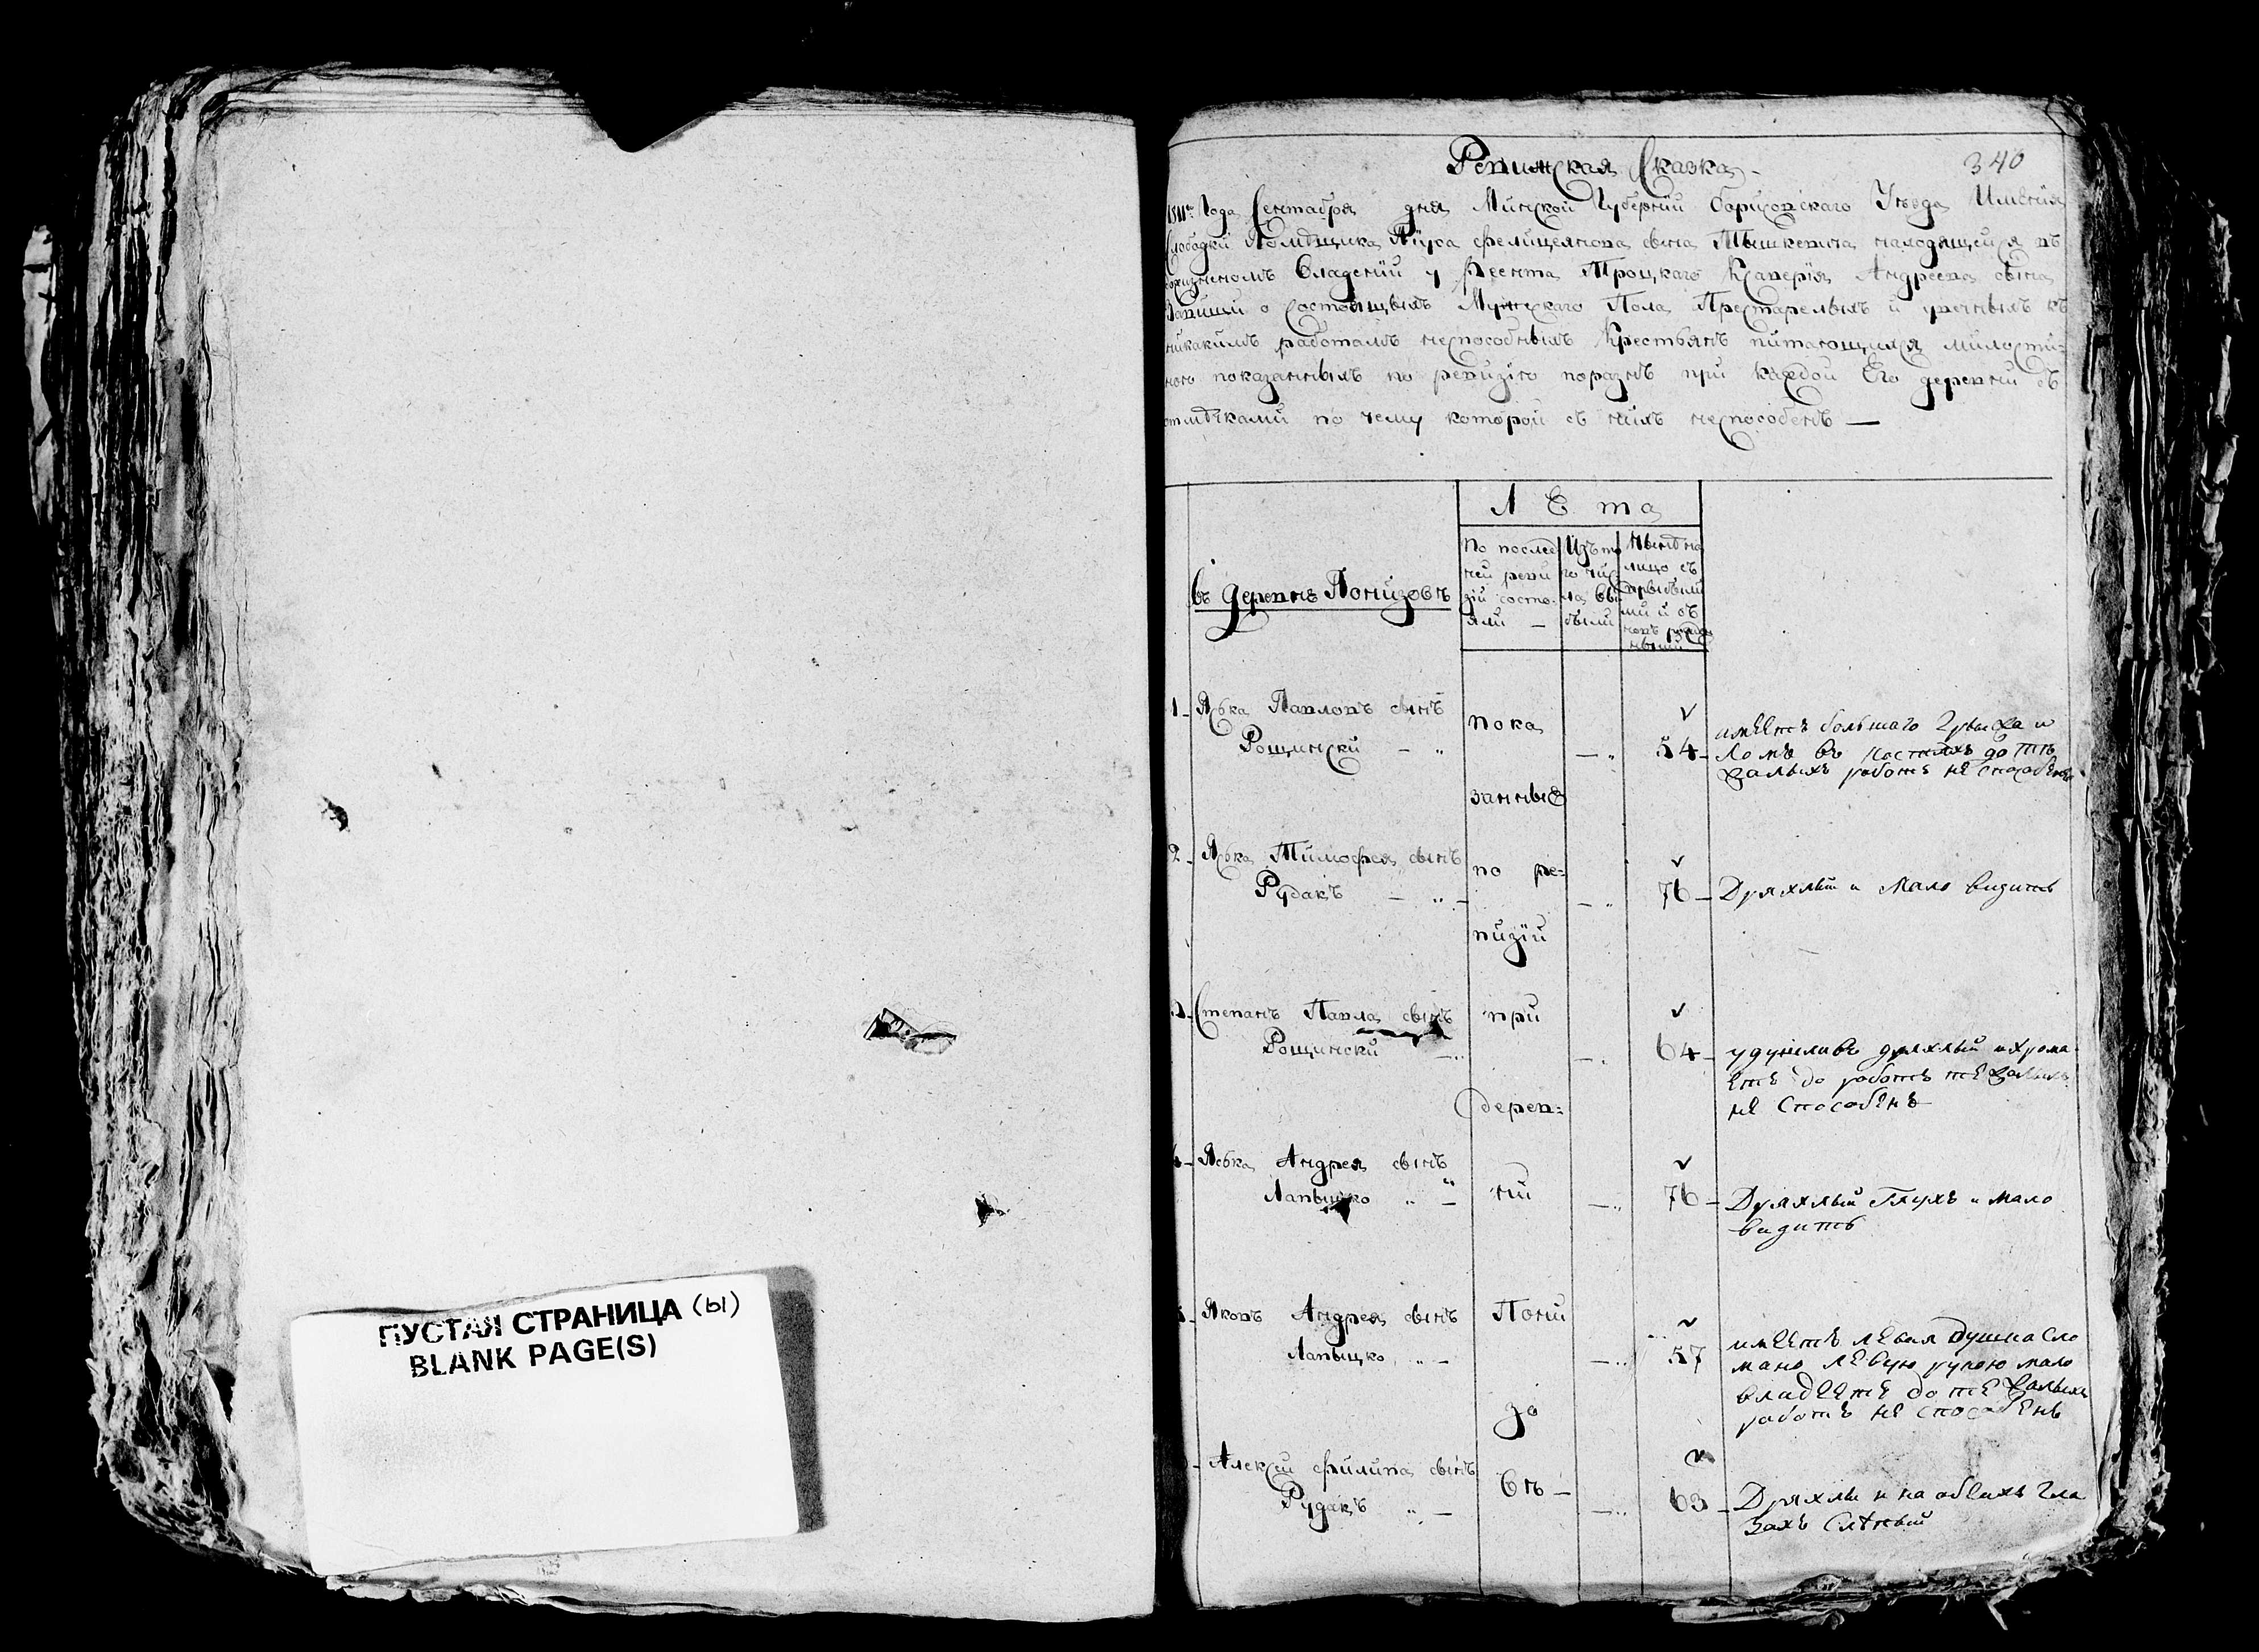 ПУСТАЯ СТРАНИЦА (ы)
BLANK PAGE(S)
Ревижская Сказка
340
1811го Года Сентября дня Минской Губернии Борисовскаго Уезда Имения
Слободки Помещика Феликсианова сына Тышкевича находящейся въ
Владении у Троцкаго Ксаверия Андреева сына
о состоящыхъ Мужескаго Пола Престарелыхъ и увечныхъ къ
никакимъ работамъ неспособныхъ Крестьянъ питающихся милости-
ною показанныхъ по ревизию поразнъ при каждой Его деревни съ
отмѣтками по чему которой съ нихъ неспособенъ —
Лета
въ деревнѣ Понизовъ
По послед
ней реви
зіи состо-
яли —
Изъ то
го чис
ла вы
были
Нынѣ на
лицо съ
прибывши
ми и съ
новъ рожден
ными
1 - Яська Павловъ сынъ
Рощински
пока
занные
54
имеетъ большаго и
ломъ въ костяхъ до тяжалыхъ
работъ не способенъ
2 - Яська Тимофея сынъ
Рудакъ
по ре-
визіи
76
Дряхлый и мало видитъ
3 - Степанъ Павла сынъ
Рощински
при
дерев-
64
удушливъ дряхлый и хрома
етъ до работъ тежалыхъ
не способенъ
Яська Андрея сынъ
Лапыцко
ни
76
Дряхлый Глухъ и мало
видитъ
Яковъ Андрея сынъ
Лапыцко
Пони
зо
57
имеетъ левая Душка сло
мано левую рукою мало
владеетъ до тежалыхъ
работъ не способенъ
Алексей Филипа сынъ
Рудакъ
въ —
63
Дряхлы и на обеихъ гла
захъ слѣпый